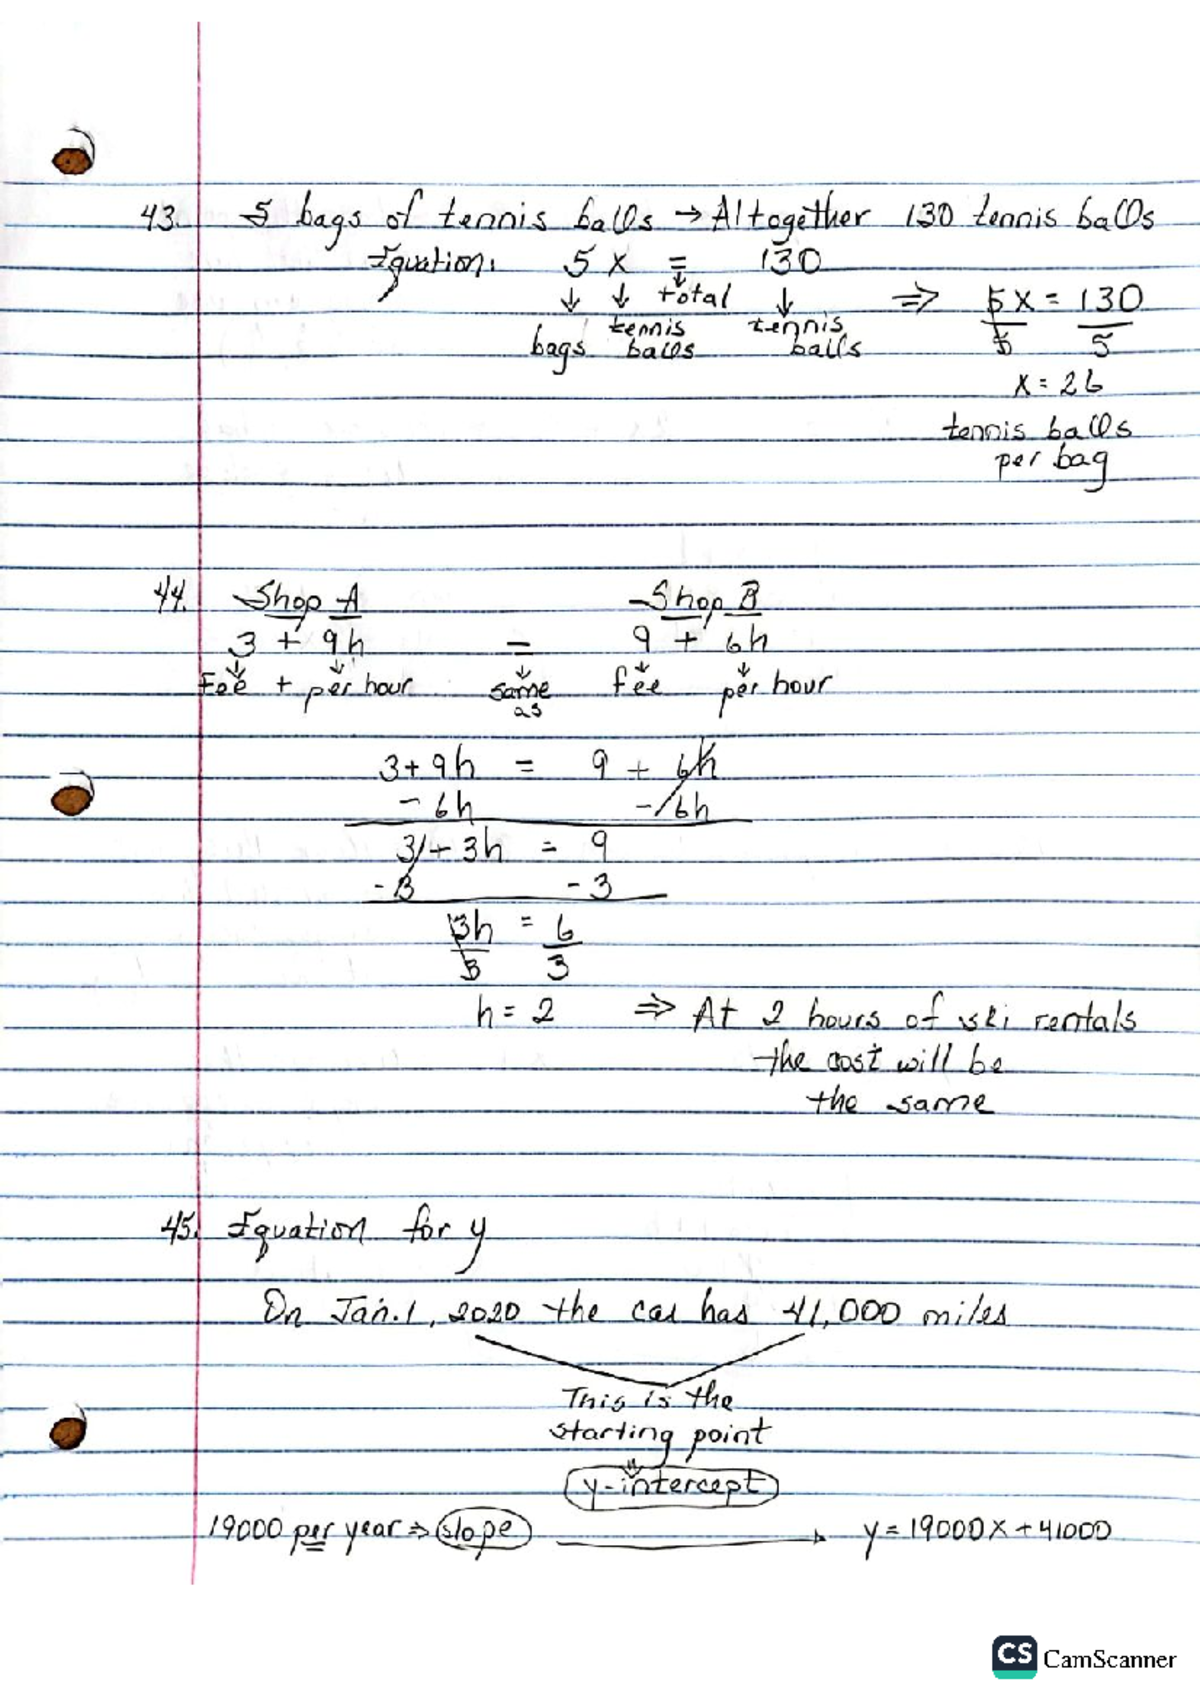 43. 5 bags of tennis balls → Altogether 130 tennis balls
Equation: 5 x = 130
↓ ↓ ↓ total ↓ ⇒ 5x = 130
bags tennis balls tennis balls 5 5
x = 26
tennis balls
per bag
44. Shop A Shop B
3 + 9h = 9 + 6h
↓ ↓ ↓ ↓ ↓
Fee + per hour same as fee per hour
3 + 9h = 9 + 6h
- 6h - 6h
3 + 3h = 9
- 3 - 3
3h = 6
3 3
h = 2 ⇒ At 2 hours of ski rentals
the cost will be
the same
45. Equation for y
On Jan. 1, 2020 the car has 41,000 miles
This is the
starting point
y-intercept
19000 per year ⇒ slope → y = 19000x + 41000
CS CamScanner